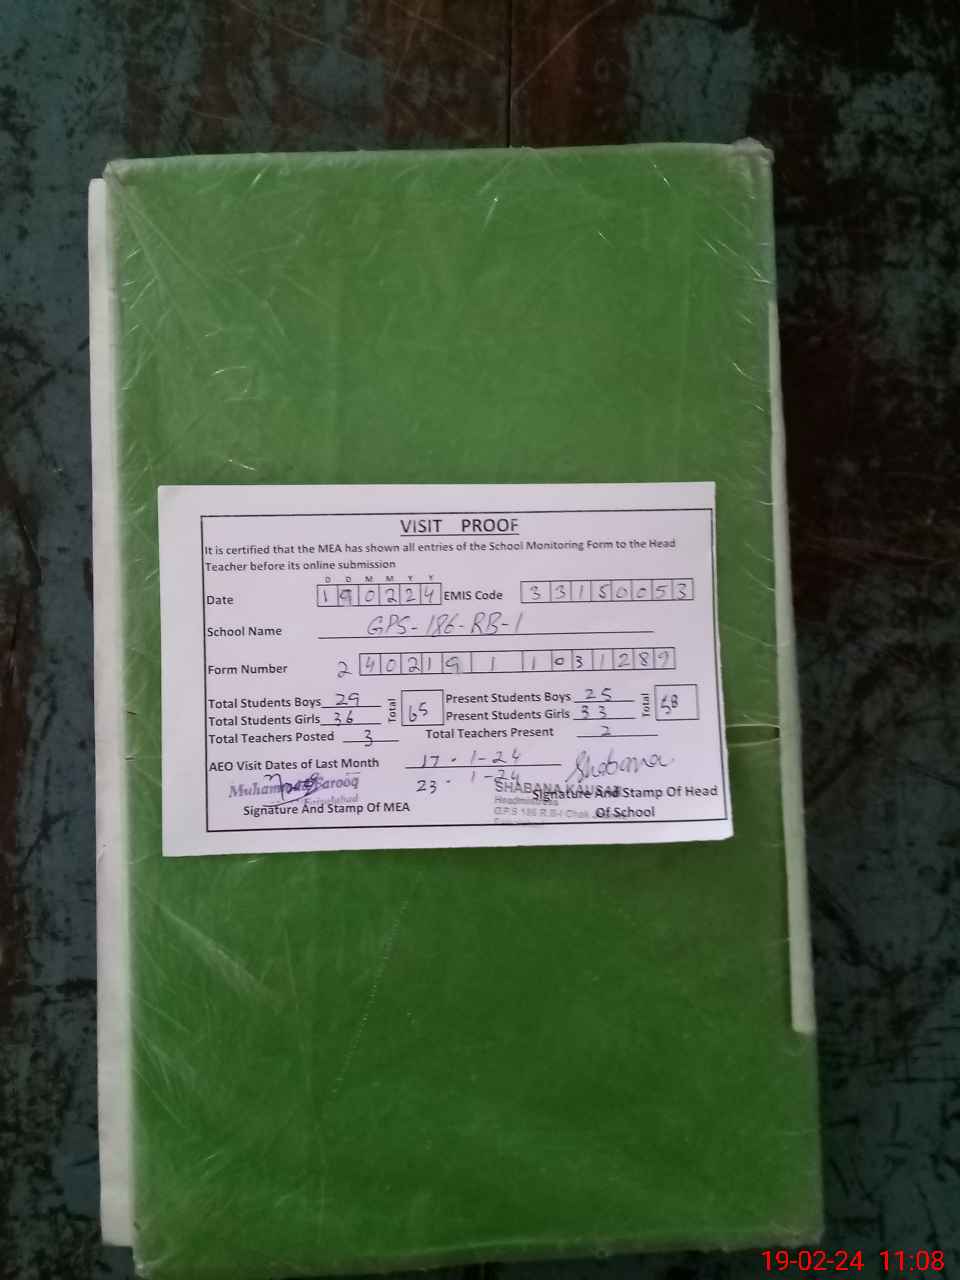 VISIT PROOF
It is certified that the MEA has shown all entries of the School Monitoring Form to the Head
Teacher before its online submission
D D M M Y Y
Date 190224 EMIS Code 33150053
School Name GPS-186-RB-1
Form Number 24021911031289
Total Students Boys 29 Total 65 Present Students Boys 25 Total 58
Total Students Girls 36 Present Students Girls 33
Total Teachers Posted 3 Total Teachers Present 2
AEO Visit Dates of Last Month 17-1-24
23-1-24
Shabana
Muhammad Farooq
Faisalabad
Signature And Stamp Of MEA
SHABANA KAUSAR
Headmistress
G.P.S 186 R.B-I Chak
Signature And Stamp Of Head
Of School
19-02-24 11:08